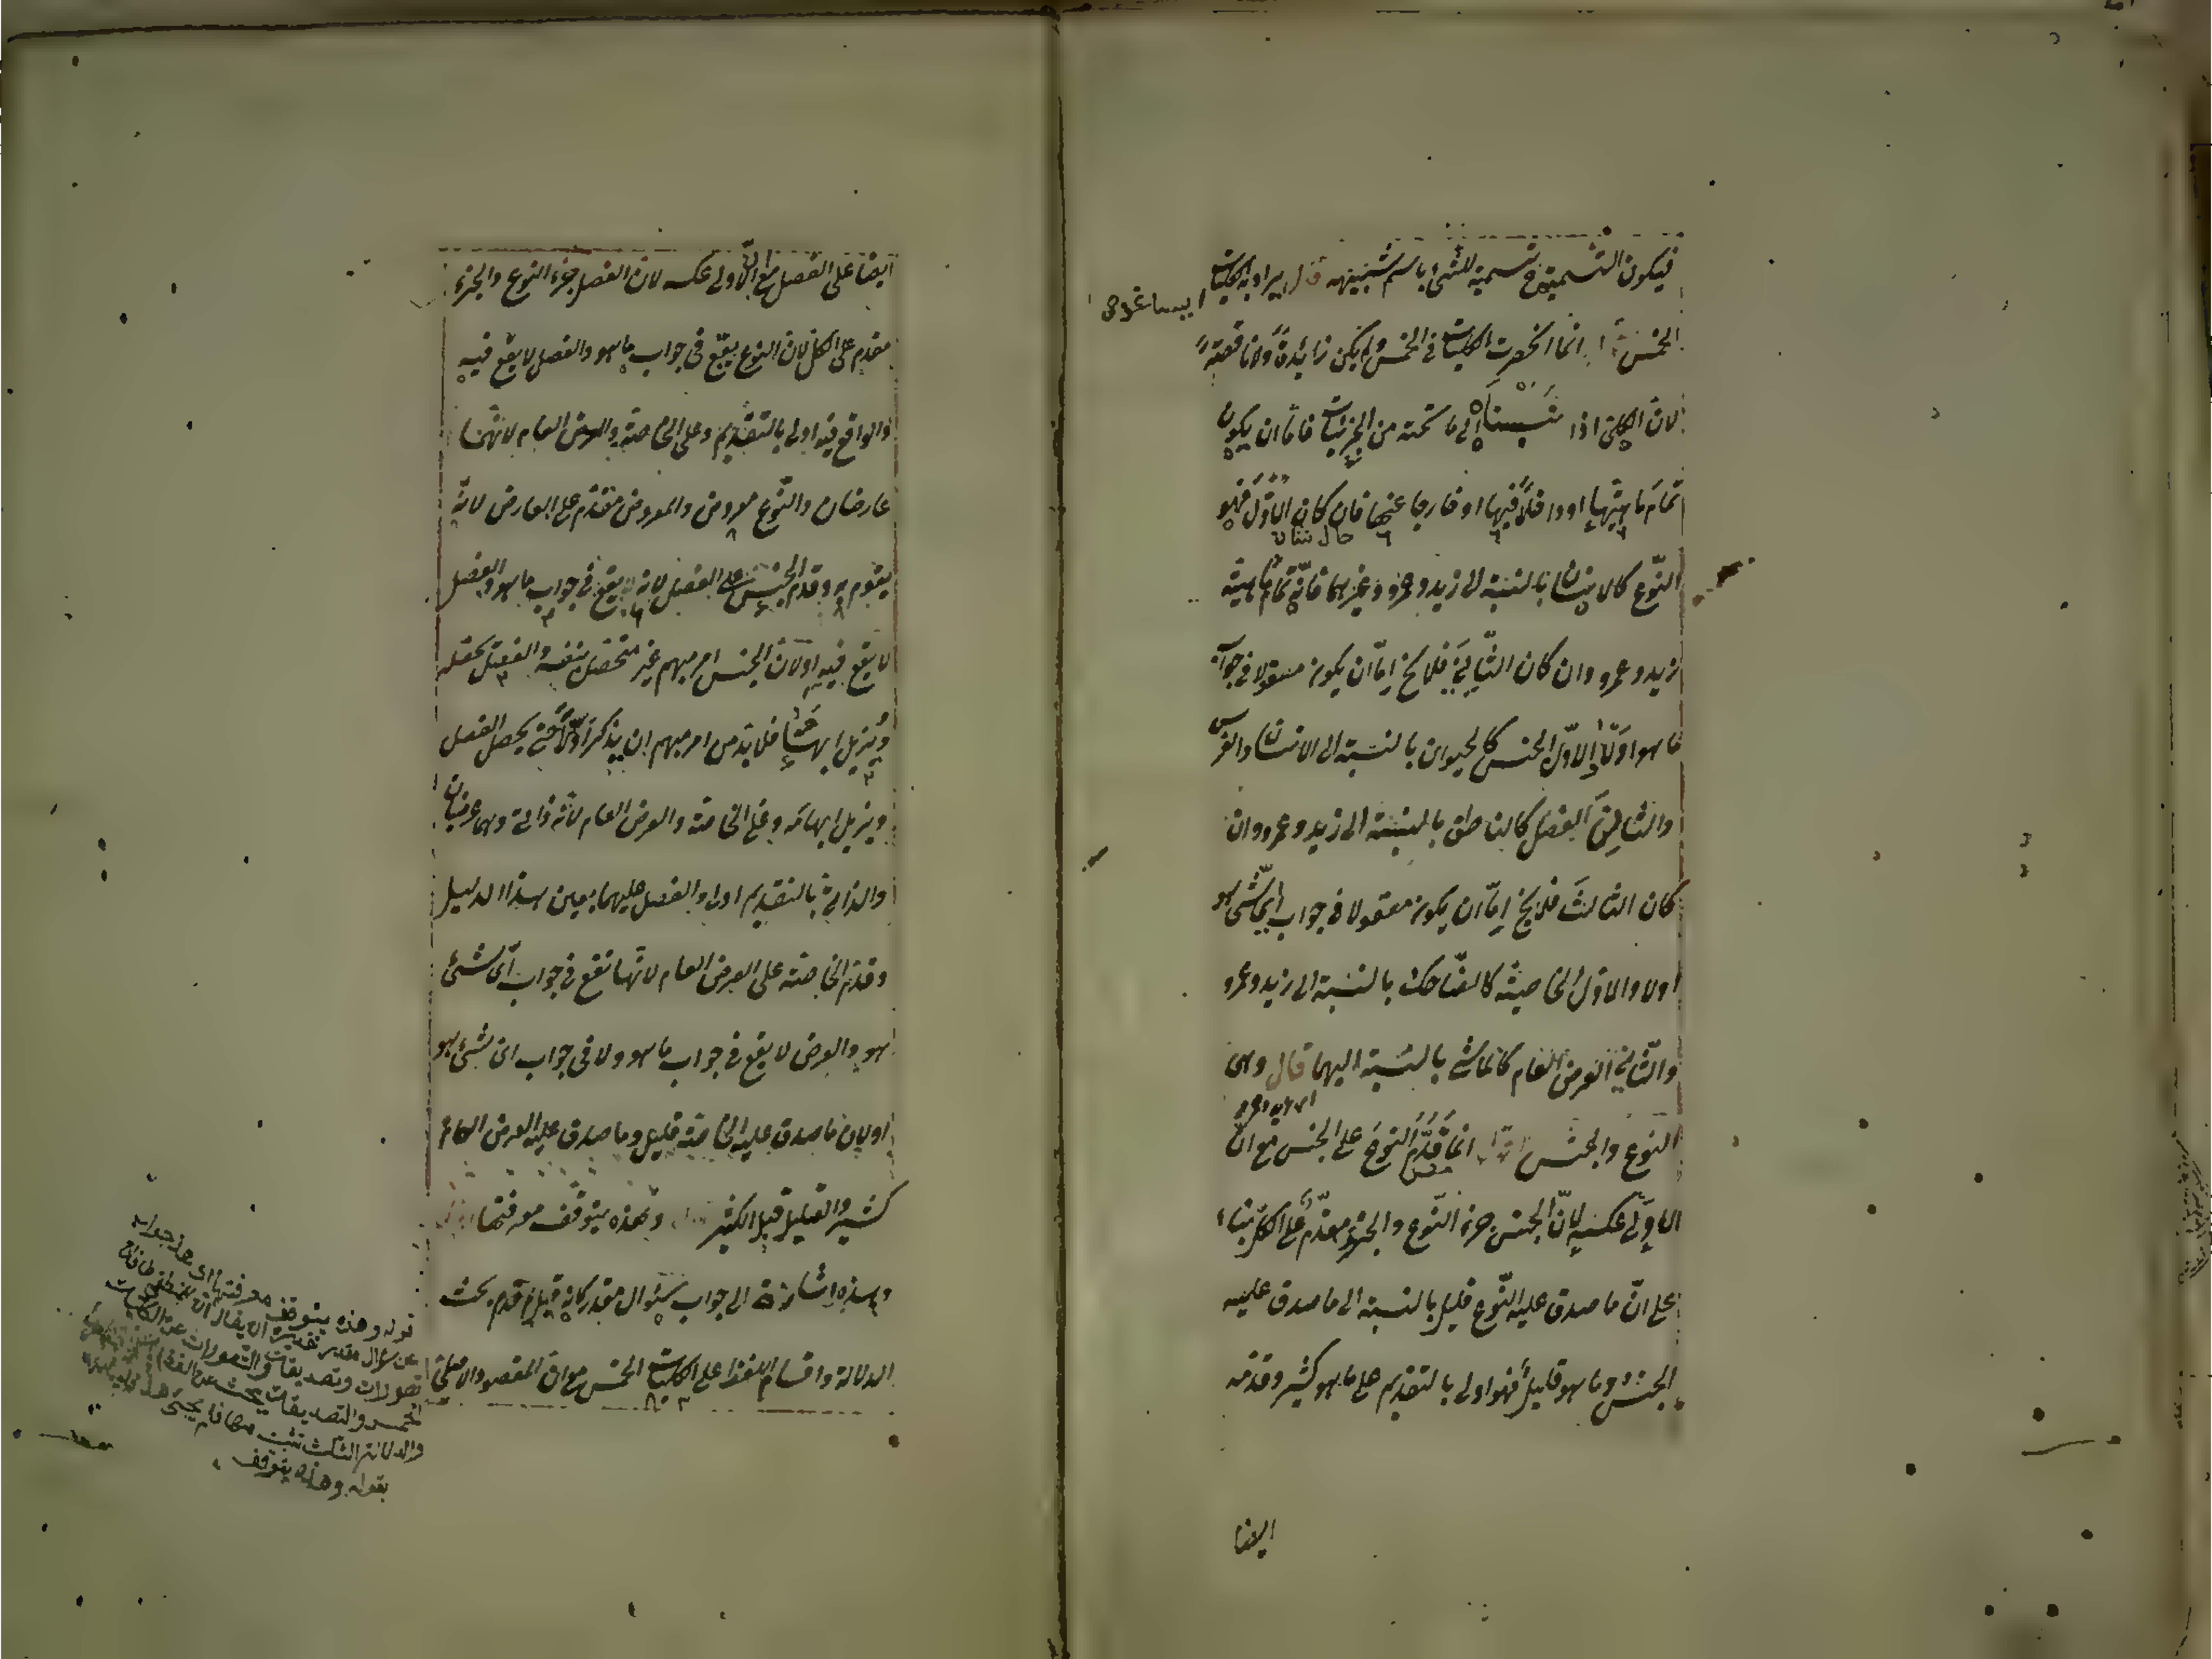 فيكون التسمية ح تسمية للشئ باسم شبيهه قال يراد به الكليات
ايساغوجى
الخمس اقول انما انحصرت الكليات فى الخمس ولم يكن زائدة ولا ناقصة
لان الكلى اذا نسبناه الى ما تحته من الجزئيات فاما ان يكون
تمام ماهيتها او داخلا فيها او خارجا عنها فان كان الاول فهو
النوع كالانسان بالنسبة الى زيد وعمرو وغيرهما فانه تمام ماهية
زيد وعمرو وان كان الثانى فلا يخ اما ان يكون مقولا فى جواب
ما هو او لا الاول الجنس كالحيوان بالنسبة الى الانسان والفرس
والثانى الفصل كالناطق بالنسبة الى زيد وعمرو وان
كان الثالث فلا يخ اما ان يكون مقولا فى جواب اى شئ هو
اولا والاول الخاصة كالضاحك بالنسبة الى زيد وعمرو
والثانى العرض العام كالماشى بالنسبة اليهما قال وهى
النوع والجنس اقول انما قدم النوع على الجنس مع ان
الاولى عكسه لان الجنس جزء النوع والجزء مقدم على الكل بناء
على ان ما صدق عليه النوع قليل بالنسبة الى ما صدق عليه
الجنس وما هو قليل فهو اولى بالتقديم على ما هو كثير وقدمه
ايضا
ايضا على الفصل مع ان الاولى عكسه لان الفصل جزء النوع والجزء
مقدم على الكل لان النوع يقع فى جواب ما هو والفصل لا يقع فيه
والواقع فيه اولى بالتقديم وعلى الخاصة والعرض العام لانهما
عارضان والنوع معروض والمعروض مقدم على العارض لانه
يقوم به وقدم الجنس على الفصل لانه يقع فى جواب ما هو والفصل
لا يقع فيه او لان الجنس امر مبهم غير متحصل بنفسه والفصل يحصله
ويزيل ابهامه فلا بد من امر مبهم ان يذكر اولا حتى يحصل الفصل
ويزيل ابهامه وعلى الخاصة والعرض العام لانه ذاتى وهما عرضيان
والذاتى بالتقديم اولى والفصل عليهما بعين هذا الدليل
وقدم الخاصة على العرض العام لانها تقع فى جواب اى شئ
هو والعرض لا يقع فى جواب ما هو ولا فى جواب اى شئ هو
او لان ما صدق عليه الخاصة قليل وما صدق عليه العرض العام
كثير والقليل قبل الكثير قال وهذه يتوقف معرفتها اقول
وهذه اشارة الى جواب سئوال مقدر كانه قيل لم قدم بحث
الدلالة واقسام اللفظ على الكليات الخمس مع ان المقصود الاصلى
قوله وهذه يتوقف معرفتها اى هذا جواب
عن سؤال مقدر تقديره ان يقال ان للمنطق طرفان
تصورات وتصديقات والتصورات عن الكليات
الخمس والتصديقات يبحث عن القضايا
والدلالات الثلث ليست منها فلم يبحث هذا
بقوله وهذه يتوقف